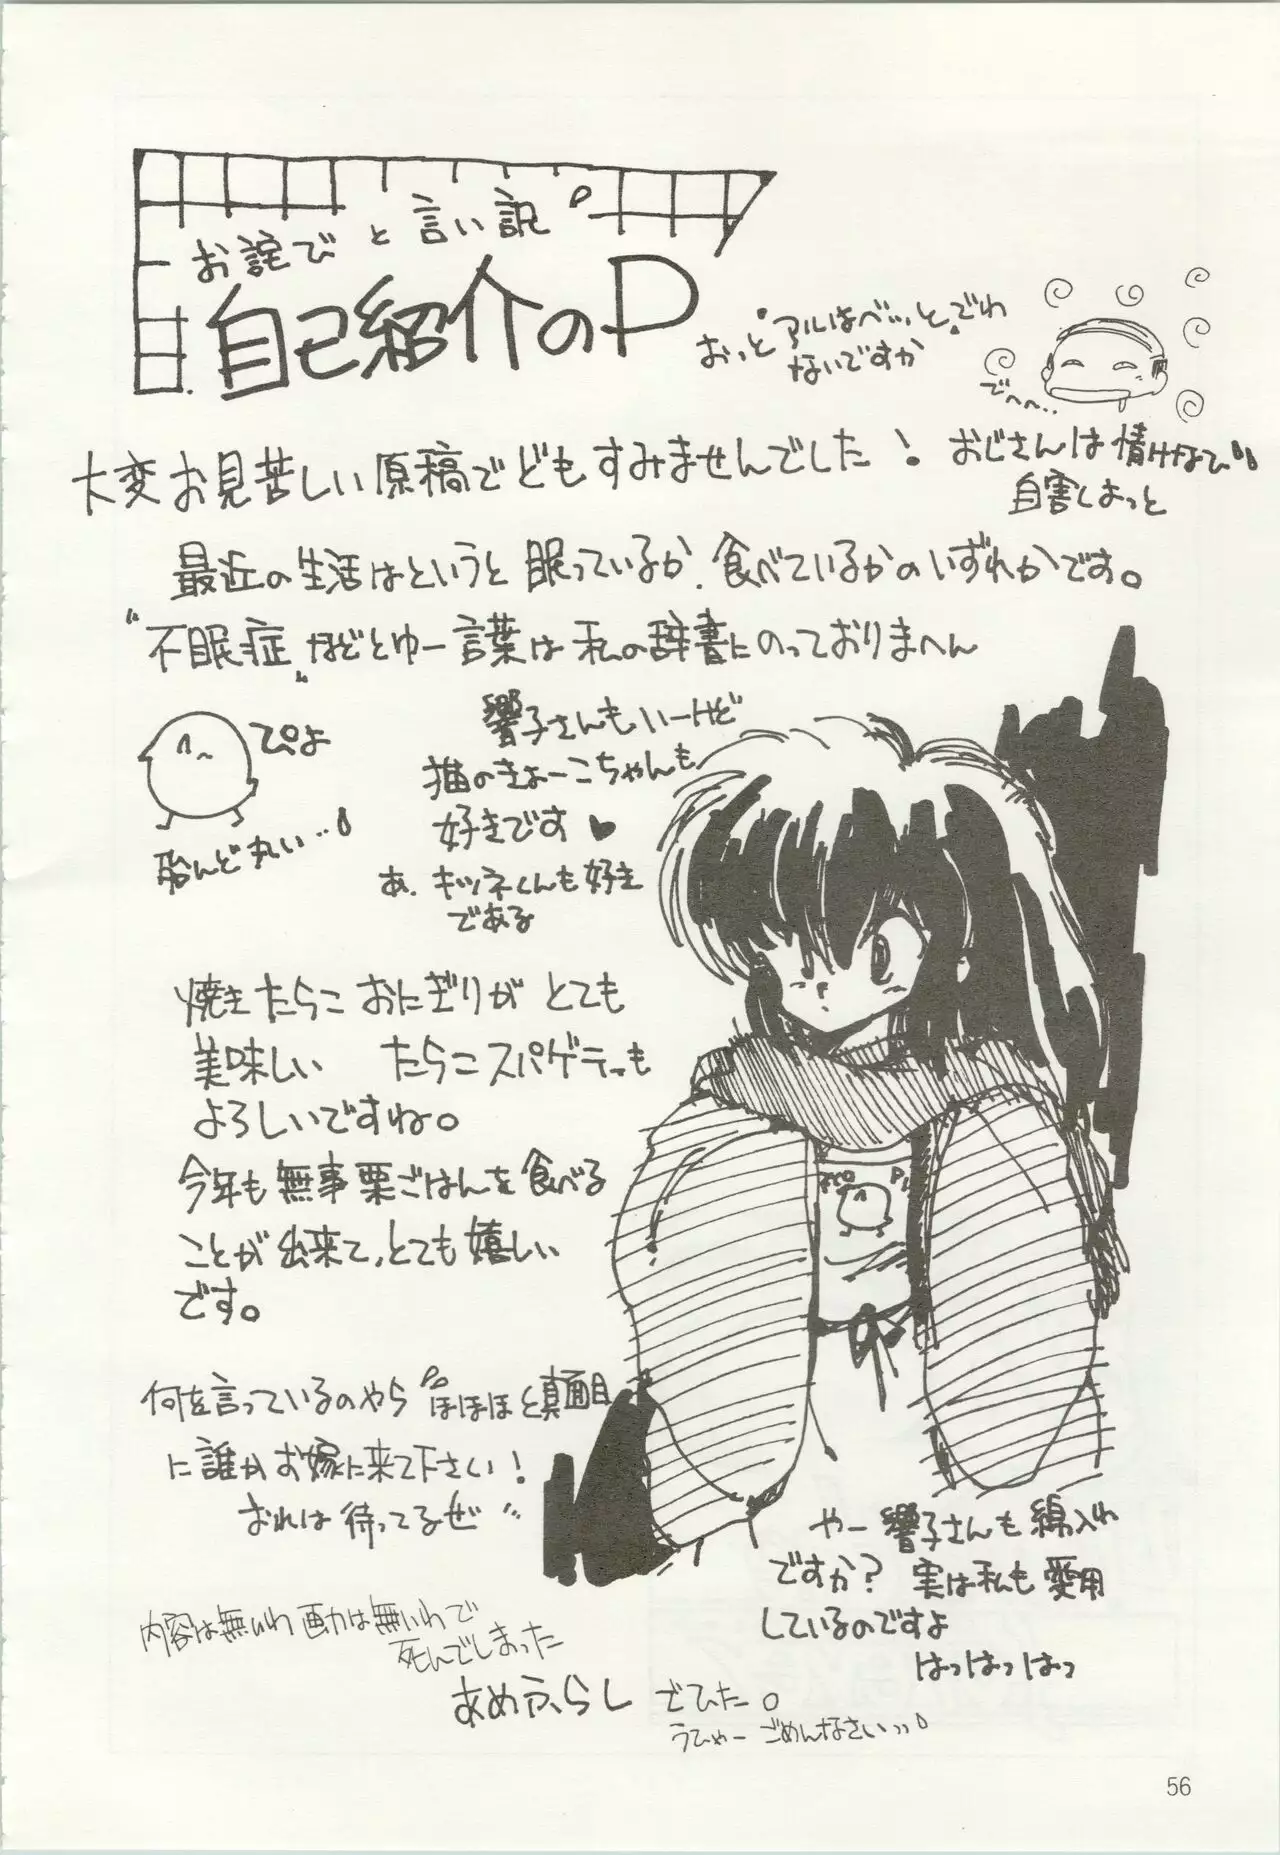 お詫びと言い訳
自己紹介のP
おっと"アルはべぃっと"でわ
ないですか
でへへ‥
大変お見苦しい原稿でどもすみませんでした!
おじさんは情けなひ
自害しまっと
最近の生活はというと眠っているか、食べているかのいずれかです。
"不眠症"などとゆー言葉は私の辞書にのっておりまへん
ぴよ
殆んど丸い‥
響子さんもいーけど
猫のきょーこちゃんも
好きです♥
あ、キツネくんも好き
である
焼きたらこおにぎりが とても
美味しい たらこスパゲティも
よろしいですね。
今年も無事栗ごはんを食べる
ことが出来て、とても嬉しい
です。
何を言っているのやら ほほほと真面目
に誰かお嫁に来て下さい!
おれは待ってるぜ
やー響子さんも綿入れ
ですか? 実は私も愛用
しているのですよ
はっはっはっ
内容は無いわ画力は無いわで
死んでしまった
あめふらし でひた。
うひゃーごめんなさい
56